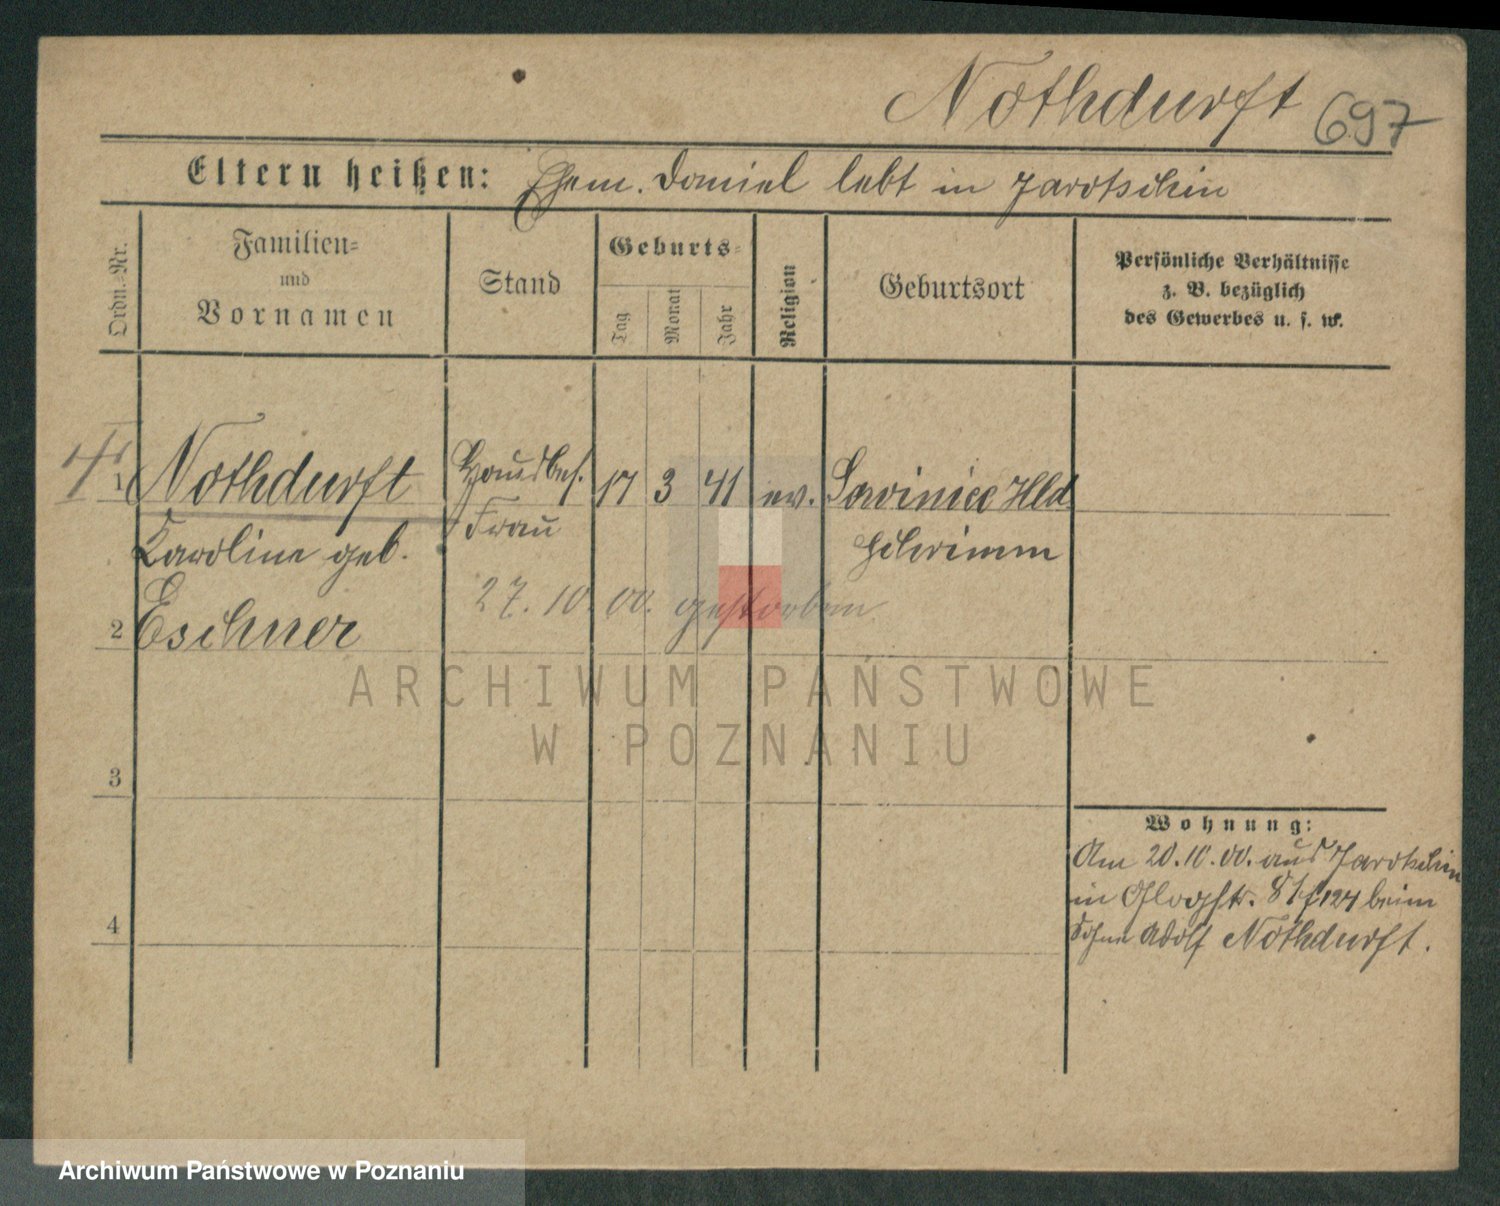 Nothdurft 697
Eltern heißen: Ehem. Daniel lebt in Jarotschin
Ordn.-Nr.
Familien-
und
Vornamen
Stand
Geburts-
Tag
Monat
Jahr
Religion
Geburtsort
Persönliche Verhältnisse
z. B. bezüglich
des Gewerbes u. s. w.
1 Nothdurft Hausbes. 17 3 41 ev. Hld
Karoline geb. Frau Schrimm
27. 10. 00. gestorben
2 Eschner
ARCHIWUM PAŃSTWOWE
W POZNANIU
3
Wohnung:
Am 20. 10. 00. aus Jarotschin
in Glogstr. beim
4
Sohne Adolf Nothdurft.
Archiwum Państwowe w Poznaniu